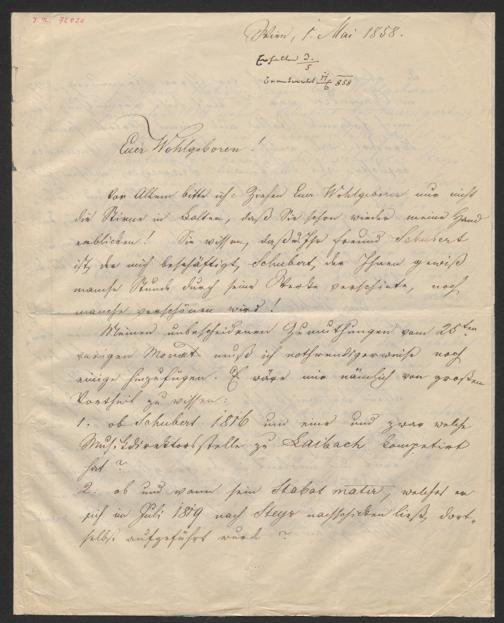 J. N. 92020
Wien, 1. Mai 1858.
Erhalten 3/5
Beantwortet 11/6 858
Euer Wohlgeboren!
Vor Allem bitte ich: Ziehen Euer Wohlgeboren nur nicht
die Stirne in Falten, daß Sie schon wieder meine Hand
erblicken! Sie wissen, daß Ihr Freund Schubert
ist, der mich beschäftigt, Schubert, der Ihnen gewiß
manche Stunde durch seine Werke verschönte, noch
manche verschönen wird!
Meinen unbescheidenen Zumuthungen vom 25ten
vorigen Monat muß ich nothwendigerweise noch
einige hinzufügen. Es wäre mir nämlich von großem
Vortheil zu wissen:
1. ob Schubert 1816 um eine und zwar welche
Musikdirektorsstelle zu Laibach kompetirt
hat?
2. ob und wann sein Stabat mater, welches er
sich im Juli 1819 nach Steyr nachschicken ließ, dort-
selbst aufgeführt wurde?